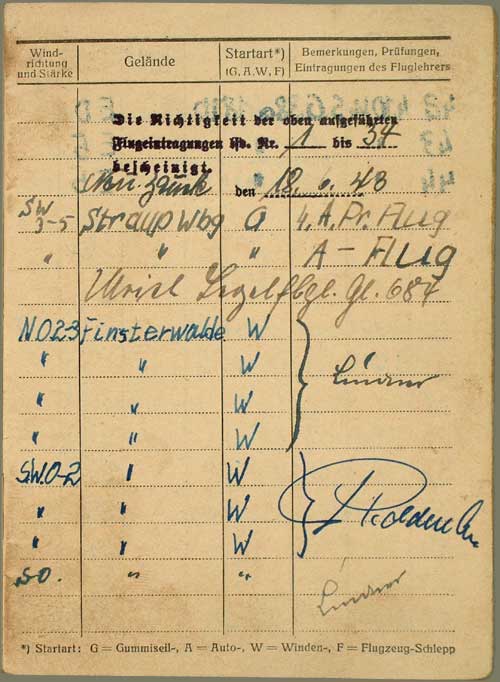 Wind-
richtung
und Stärke
Gelände
Startart*)
(G, A, W, F)
Bemerkungen, Prüfungen,
Eintragungen des Fluglehrers
Die Richtigkeit der oben ausgeführten
Flugeintragungen lfd. Nr. 1 bis 34
bescheinigt.
den 18. 43
SW 3-5 Straupwbg G 4. A. Pr. Flug
" " " A - Flug
Gl. 684
NO2-3 Finsterwalde W
" " W Lindner
" " W
" " W
S.W.0-2 " W
" " W
" " W
SO. " " Lindner
*) Startart: G = Gummiseil-, A = Auto-, W = Winden-, F = Flugzeug-Schlepp